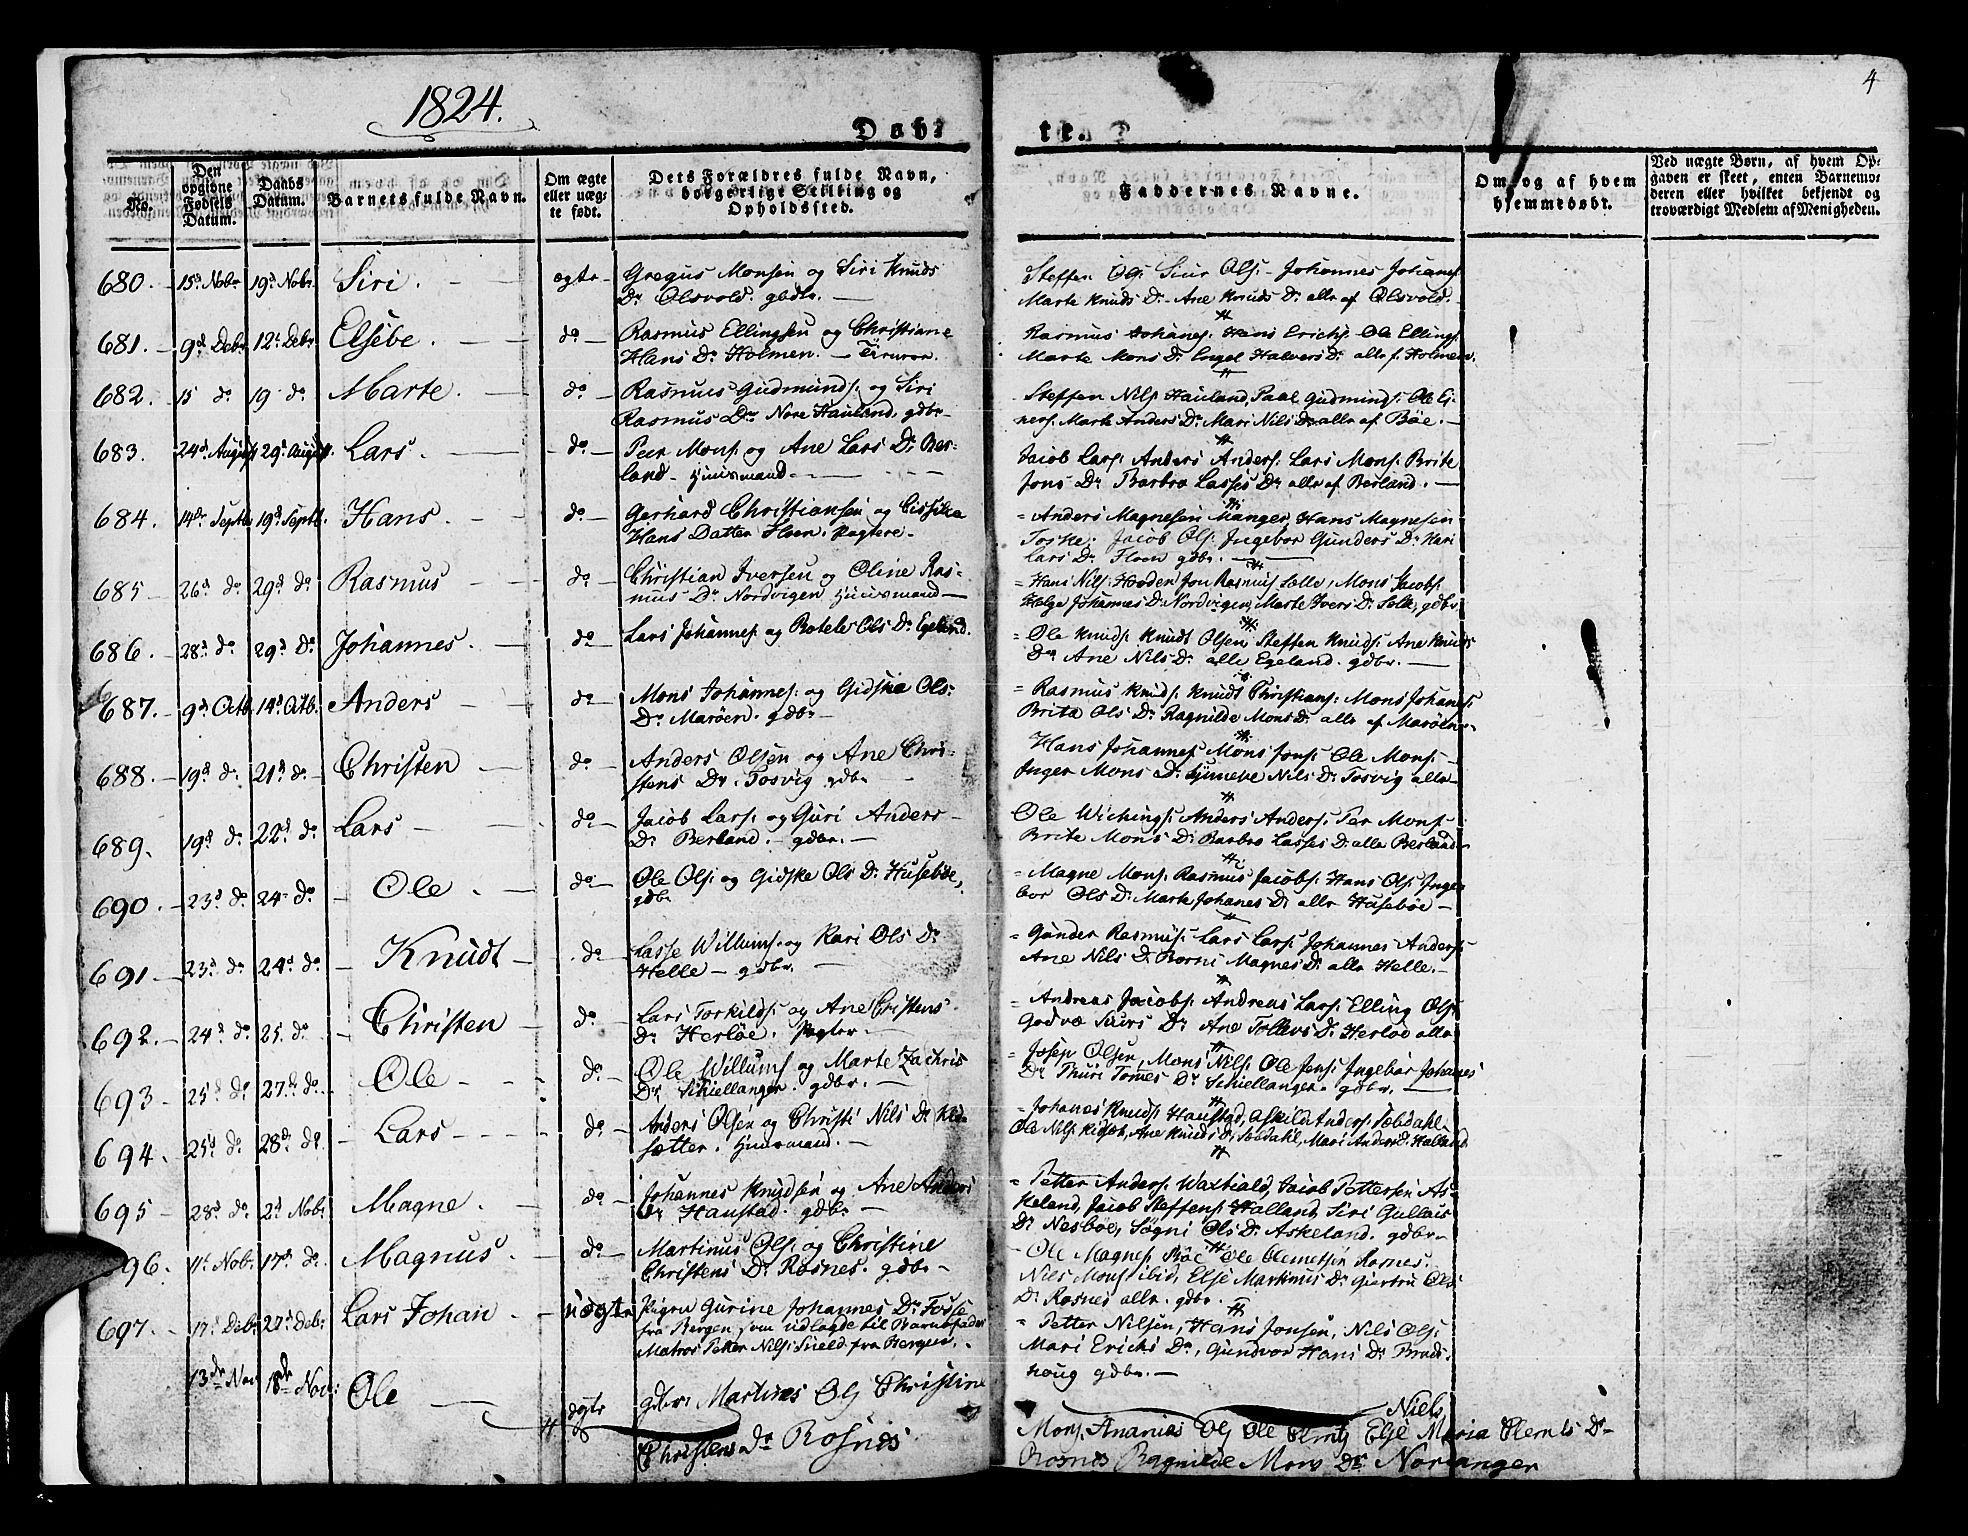 1824.
4
Døb:
te.
No.
Den opgivne Fødsels Datum.
Daabs Datum.
Barnets fulde Navn.
Om ægte eller uægte født.
Dets Forældres fulde Navn, borgerlige Stilling og Opholdssted.
Faddernes Navne.
Om, og af hvem hjemmedøbt.
Ved uægte Børn, af hvem Opgaven er skeet, enten Barnemoderen eller hvilket bekjendt og troværdigt Medlem af Menigheden.
680. 15d Nobr 19d Nobr. Siri. ægte Gregus Monsen og Siri Knuds
Dr Olsvold. gbdr.
Steffen Ols: Siur Ols: Johannes Johanes:
Marte Knuds Dr Ane Knuds Dr alle af Olsvold.
681. 9d Debr 12d Debr Elsebe. do Rasmus Ellingsen og Christiane
Hans Dr Holmen.
Rasmus Johanes: Hans Erichs: Ole Ellings:
Marte Mons Dr Engel Halvers Dr alle f. Holmen.
682. 15 do 19 do Marte. do Rasmus Gudmunds: og Siri
Rasmus Dr Nore Hauland. gdbr
Steffen Nils: Hauland, Paal Gudminds: Ole Ei-
ners: Marte Anders Dr Mari Nils Dr alle af Böe.
683. 24d August 29d August. Lars. do Peer Mons: og Ane Lars Dr Ber-
land. Huusmand.
Jacob Lars: Anders Anders: Lars Mons: Brite
Jons Dr Barbro Lasses Dr alle af Berland.
684. 14d Septb. 19d Septb. Hans. do Gerhard Christiansen og Cissika
Hans Datter Floen. Pagtere.
Anders Magnesen Manger, Hans Magnesen
Toske. Jacob Ols: Ingebor Gunders Dr Kari
Lars Dr Floen gdbr.
685 26d do 29d do Rasmus do Christian Iversen og Oline Ras-
mus Dr Nordvigen Huusmand
Hans Nils: Hodden Jon Rasmus Selle, Mons Jacobs:
Helge Johannes Dr Nordvigen, Marte Ivers Dr Selle, gdbr
686. 28d do 29d Do Johannes. do Lars Johannes: og Botele Ols Dr Egeland.
Ole Knuds: Knudt Olsen, Steffen Knuds: Ane Knuds
Dr Ane Nils Dr alle Egeland. gdbr.
687. 9d Octb. 14d Octb. Anders do Mons Johannes: og Gidske Ols:
Dr Maröen. gdbr
Rasmus Knuds: Knudt Christians: Mons Johanes:
Brita Ols Dr Ragnilde Mons Dr alle af Maröen
688. 19d do 21d do Christen do Anders Olsen og Ane Chris-
stens Dr Tosvig gdbr
Hans Johannes: Mons Jons: Ole Mons:
Inger Mons Dr Synneve Nils Dr Tosvig alle
689. 19d do 22d do Lars do Jacob Lars: og Guri Anders
Dr Berland. gdbr.
Ole Wichings: Anders Anders: Per Mons:
Brite Mons Dr Barbro Lasses Dr alle Berland
690. 23d do 24 do Ole. do Ole Ols: og Gidske Ols Dr Huseböe,
gdbr
Magne Mons: Rasmus Jacobs: Hans Ols: Inge-
bor Ols Dr Marte Johanes Dr alle Huseböe
691 23d do 24d do Knudt do Lasse Willums: og Kari Ols Dr
Helle gdbr.
Gunder Rasmus: Lars Lars: Johannes Anders:
Ane Nils Dr Borni Magnes Dr alle Helle.
692. 24d do 25. do Christen do Lars Torkilds: og Ane Cristens
Dr Herlöe. Pagter.
Andreas Jacobs: Andreas Lars: Elling Ols:
Godvæ Siurs Dr Ane Tollevs Dr Herlöe alle
693 25d do 27de do Ole do. Ole Willums: og Marte Zachris
Dr Schiellanger. gdbr.
Josep Olsen, Mons Nils: Ole Jens: Ingebor Johanes
Dr Thuri Tomes Dr Schiellanger. gdbr.
694. 25d do 28de do Lars do. Anders Olsen og Christi Nils Dr Kid-
sætter. Huusmand.
Johanes Knuds: Haustad, Askild Anders: Sæbdahl
Ole Nils: Kidsæt, Ane Knuds Dr Sæbdahl, Mari Anders Dr Halland
695 28d do 2d Nobr. Magne. do Johannes Knudsen og Ane Anders
Dr Haustad. gdbr
Petter Anders: Waxtvald, Jacob Pettersen As-
keland, Jacob Steffens: Halland, Siri Gullais
Dr Nesböe, Søgni Ols Dr Askeland. gdbr
696. 11d Nobr. 17d do Magnus. do Martinus Ols: og Christine
Christens Dr Rosnes. gdbr
Ole Magnes: Böe Ole Clemetsen Rosnes.
Niels Mons: ibid, Else Martinus Dr Giertru Ols
Dr Rosnes alle. gdbr.
697. 17d Debr 27d Debr Lars Johan uægte Pigen Gurine Johannes Dr Fosse
fra Bergen som udlagde til Barnefader
Matros Petter Nils: Sneld. fra Bergen.
Petter Nilsen, Hans Jonsen, Nils Ols:
Mari Erichs Dr, Gundvor Hans Dr Brads-
houg gdbr.
13de Nov 18de Nov: Ole ægte gdbr: Martinus Ols Christine
Christens Dr Rosnes
Niels
Mons: Ananias Ols Ole Clemts: Else Maria Clemts Dr
Rosnes Ragnilde Mons Dr Noranger